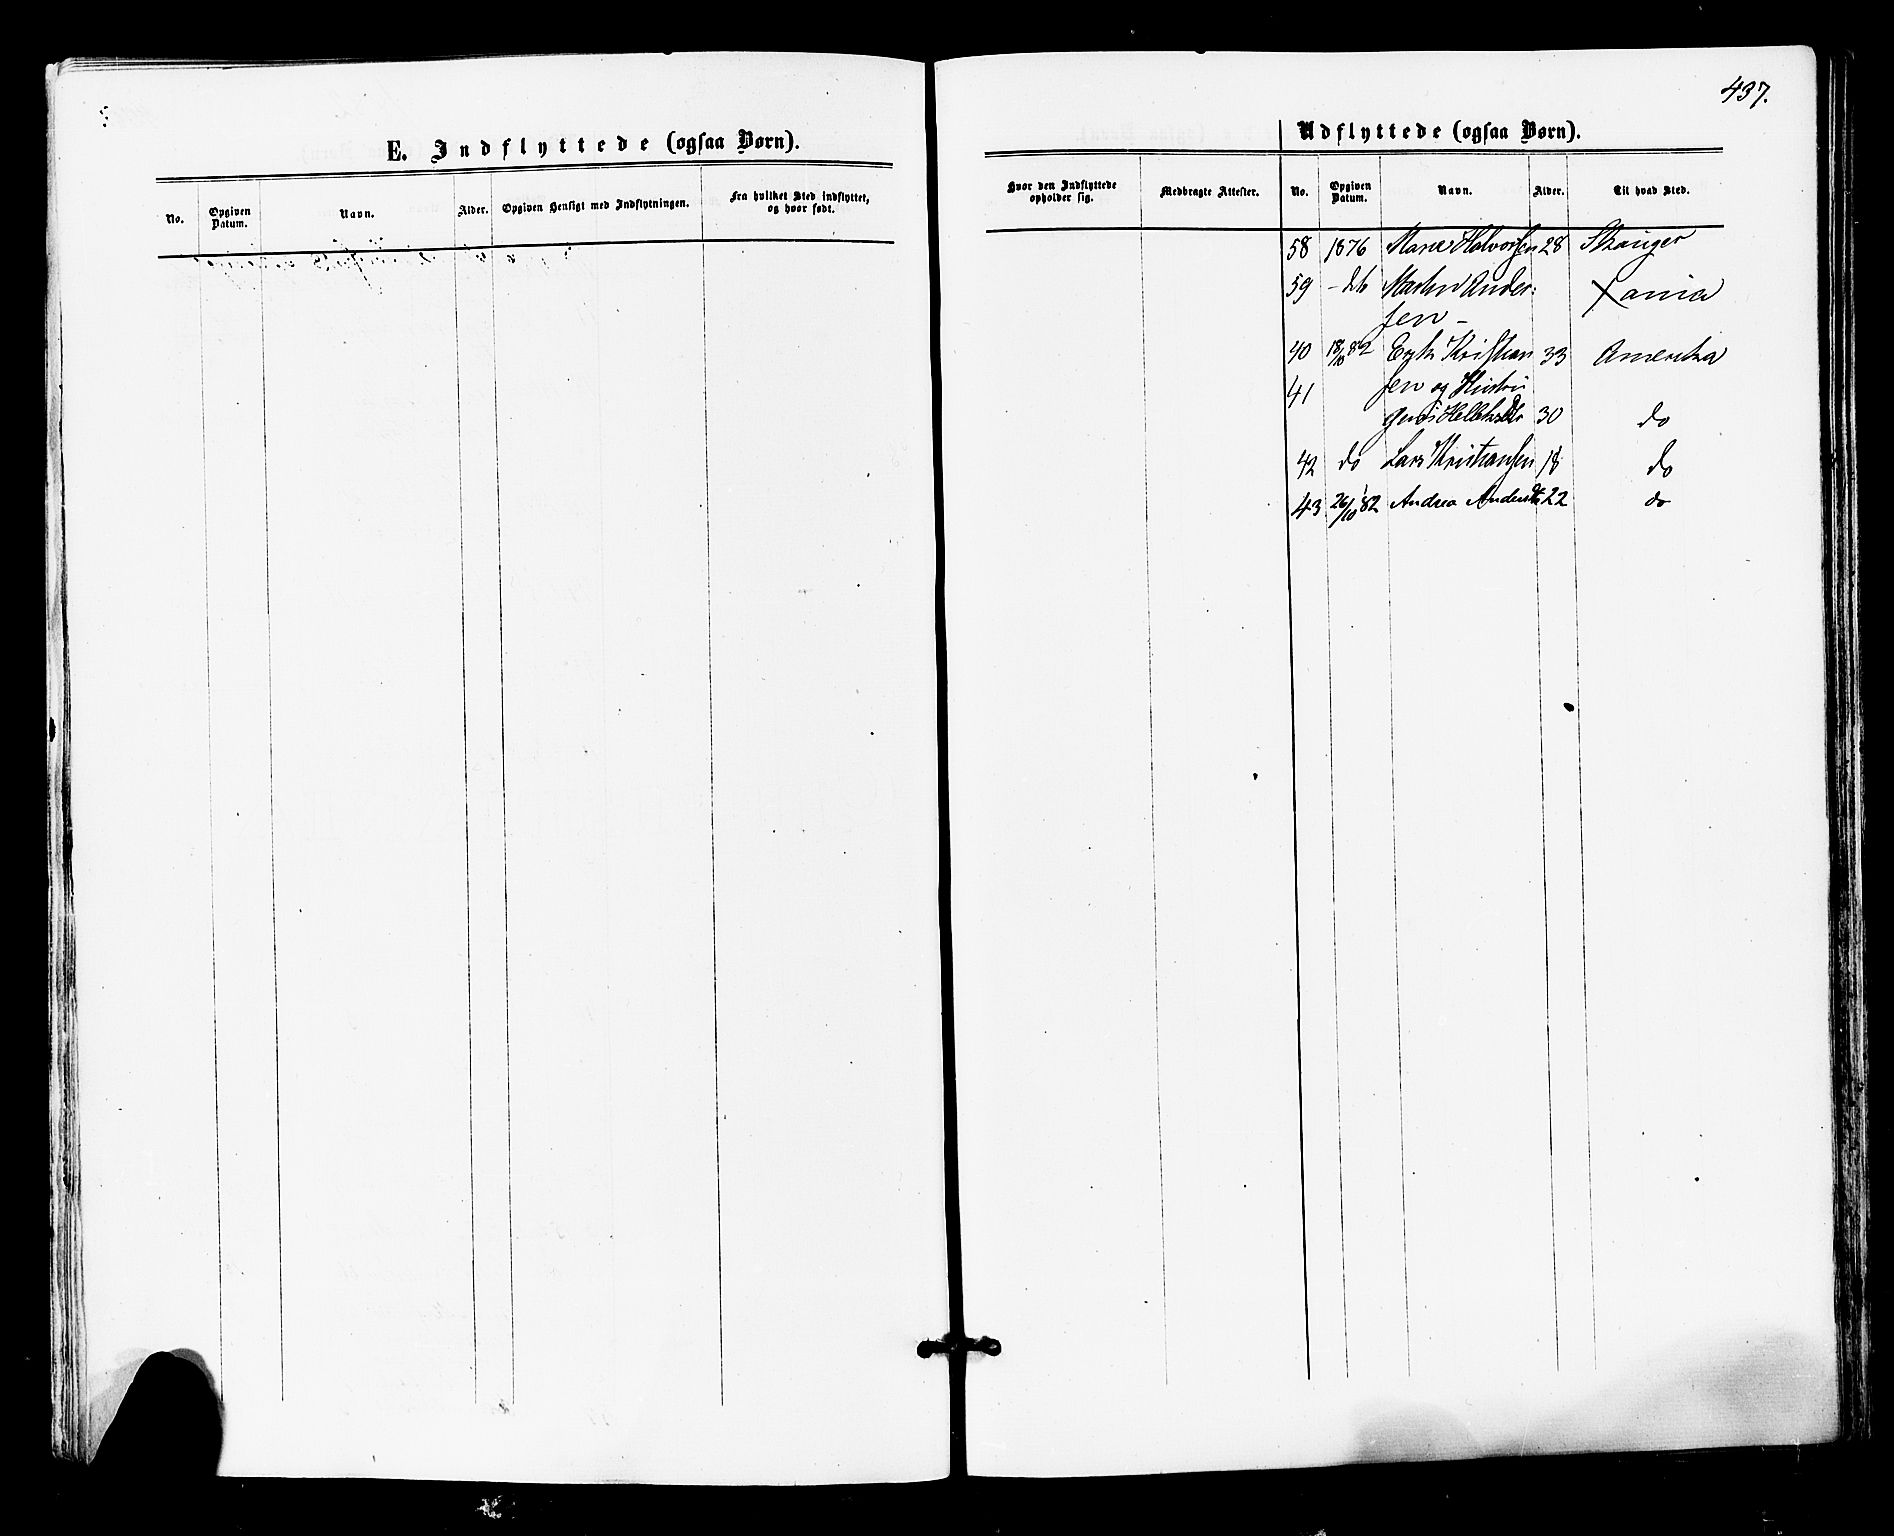 437.
E. Indflyttede (ogsaa Børn).
No. Opgiven Datum. Navn. Alder. Opgiven Hensigt med Indflytningen. Fra hvilket Sted indflyttet, og hvor født.
Udflyttede (ogsaa Børn).
Hvor den Indflyttede opholder sig. Medbragte Attester. No. Opgiven Datum. Navn. Alder. Til hvad Sted.
58 1876 Marie Halvorsen 28 Skauger
59 - do Martin Ander: Xania
sen -
40 18/10 82 Kristian 33 Amerika
41 sen og Hustru
30 do
42 do Lars Kristiansen 18 do
43 26/10 82 Andrea Andersdtr 22 do